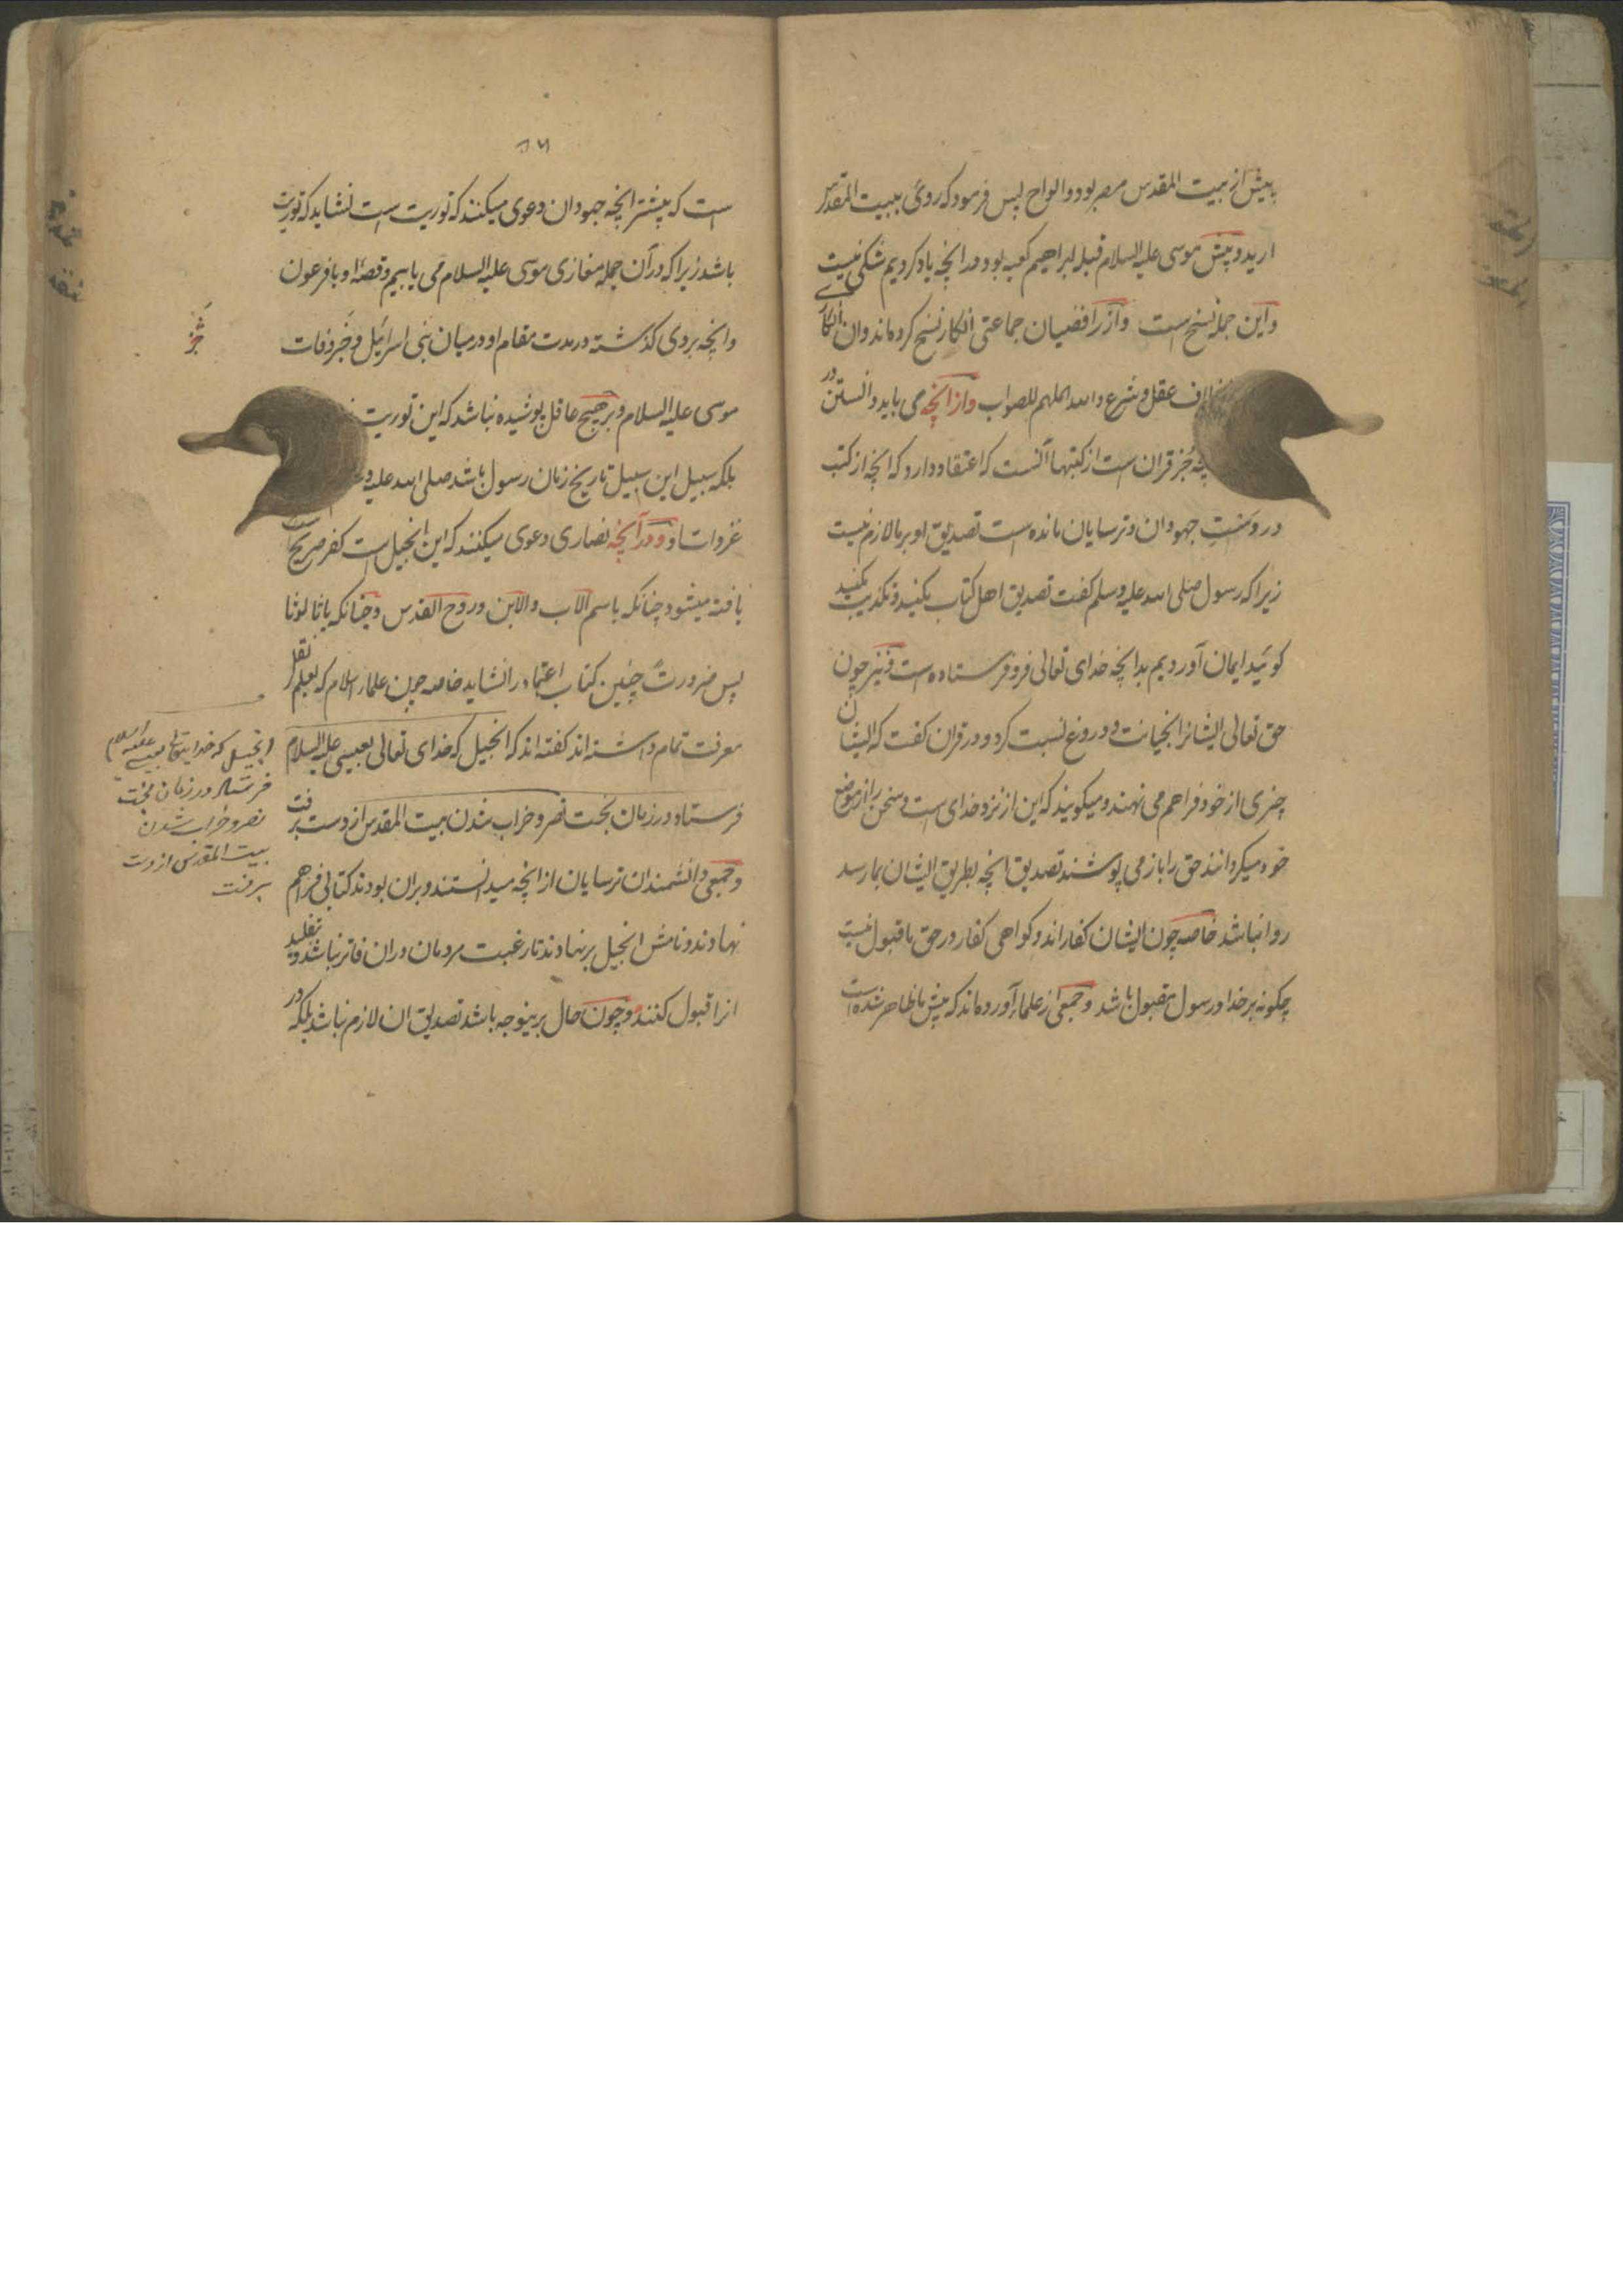 پیش از بیت المقدس مصر بود و الواح پس فرمود که روی ببیت المقدس
ارید و پیش موسی علیه السلام قبله ابراهیم کعبه بود و انچه یاد کردیم شکی نیست
و این جمله نسخ است و از رافضیان جماعتی انکار نسخ کرده‌اند و ان انکاری
خلاف عقل و شرع و الله الملهم للصواب و از انچه می باید دانستن در
چه جز قران است از کتبها آنست که اعتقاد دارد که انچه از کتب
در دست جهودان و ترسایان مانده است تصدیق او بر ما لازم نیست
زیرا که رسول صلی الله علیه وسلم کفت تصدیق اهل کتاب مکنید و تکذیب مکنید
کوئید ایمان آوردیم بدانچه خدای تعالی فرو فرستاده است و نیز چون
حق تعالی ایشانرا بخیانت و دروغ نسبت کرد و در قران کفت که ایشان
چیزی از خود فراهم می نهند و میکویند که این از نزد خدای است و سخن را از موضع
خود میکردانند حق را باز می پوشند تصدیق انچه بطریق ایشان بما رسد
روا نباشد خاصه چون ایشان کفار اند و کواهی کفار در حق ما قبول نیست
چکونه بر خدا و رسول مقبول باشد و جمعی از علما آورده‌اند که پیش ما ظاهر شده است
است که بیشتر انچه جهودان دعوی میکنند که توریت است نشاید که توریت
باشد زیرا که در آن جمله مغازی موسی علیه السلام می یابیم و قصهٔ او با فرعون
و انچه بروی کذشته در مدت مقام او در میان بنی اسرائل و خبر وفات
موسی علیه السلام و بر هیچ عاقل پوشیده نباشد که این توریت
بلکه سبیل این سبیل تاریخ زمان رسول باشد صلی الله علیه و
غزوات او و در آنچه نصاری دعوی میکنند که این انجیل است کفر صریح است
یافته میشود چنانکه باسم الاب والابن وروح القدس و چنانکه یا ثالوثا
پس ضرورت چنین کتاب اعتماد را نشاید خاصه چون علماء اسلام که بعلم نقل
معرفت تمام داشته اند کفته اند که انجیل که خدای تعالی بعیسی علیه السلام
فرستاد در زمان بخت نصر و خراب شدن بیت المقدس از دست برفت
و جمعی دانشمندان ترسایان از انچه میدانستند و بران بودند کتابی فراهم
نهادند و نامش انجیل برنهادند تا رغبت مردمان دران فاتر نباشد و بتقلید
انرا قبول کنند و چون حال برینوجه باشد تصدیق ان لازم نباشد بلکه در
انجیل که خدایتعالی بعیسی علیه السلام
فرستاد در زمان بخت
نصر و خراب شدن
بیت المقدس از دست
برفت